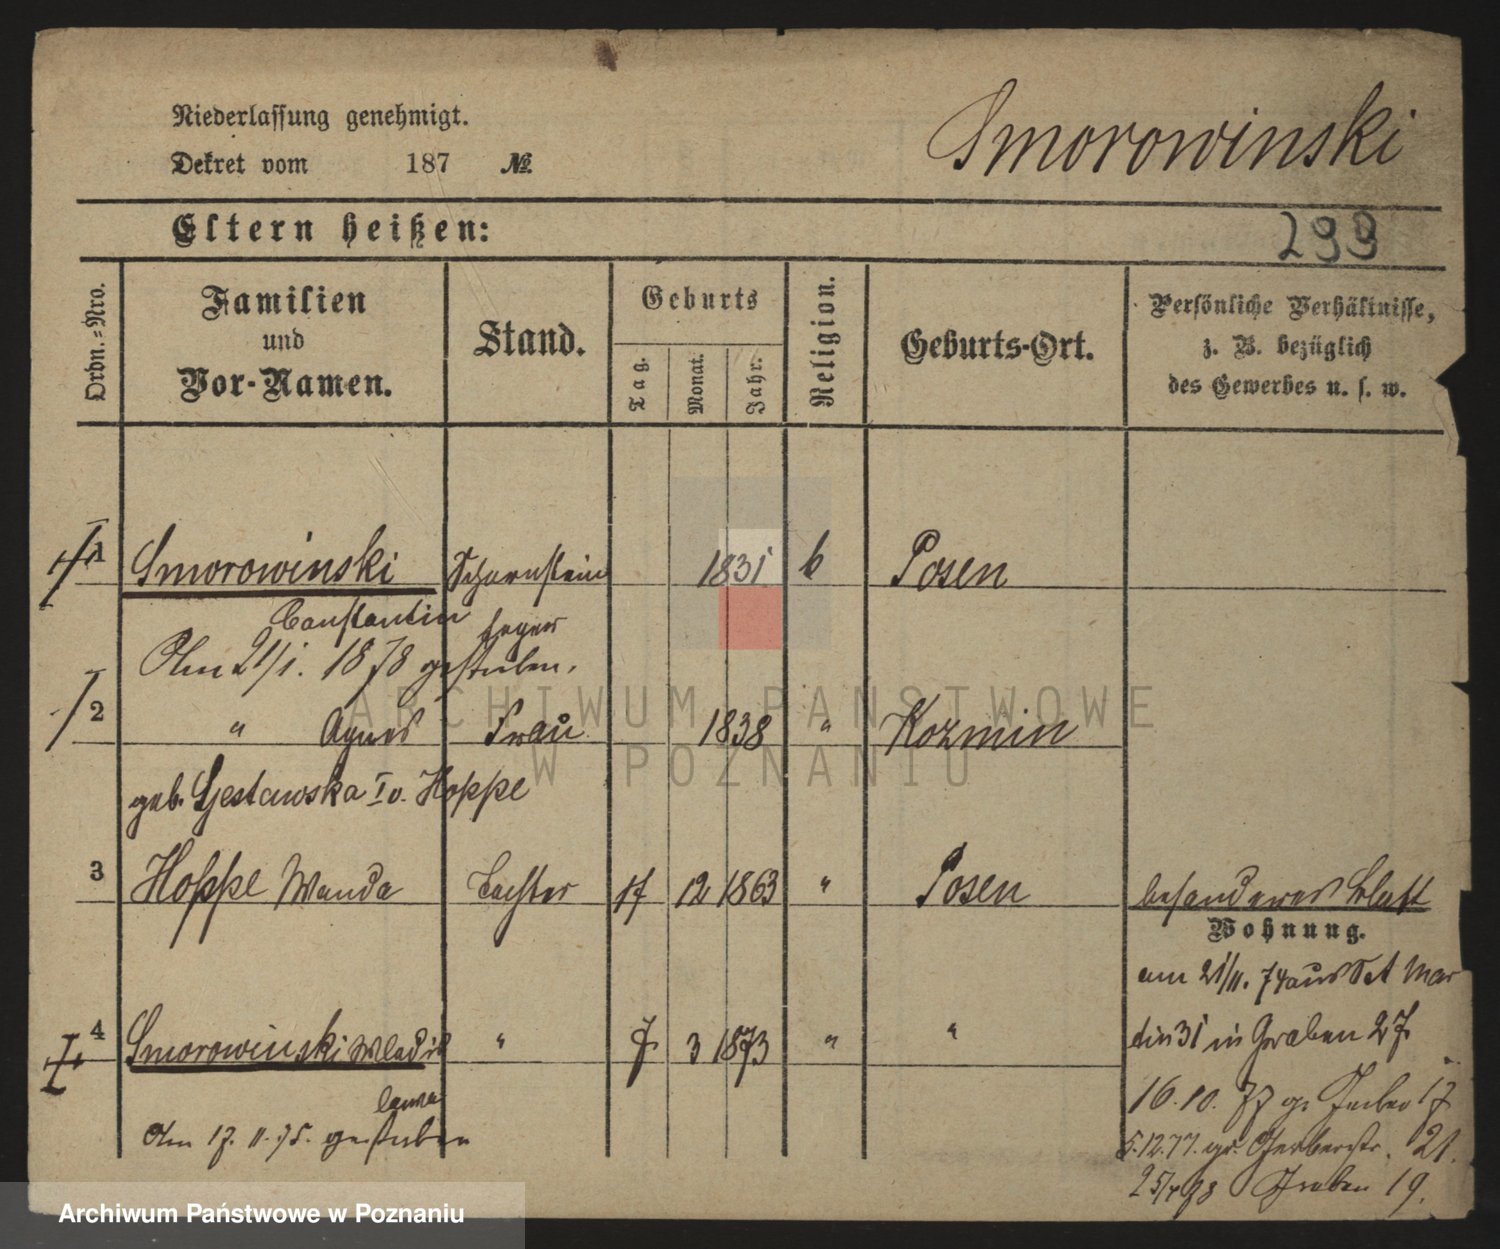 Niederlassung genehmigt.
Smorowinski
Dekret vom 187 №
Eltern heißen:
299
Ordn.-Nro.
Familien
und
Vor-Namen.
Stand.
Geburts
Tag.
Monat.
Jahr.
Religion.
Geburts-Ort.
Persönliche Verhältnisse,
z. B. bezüglich
des Gewerbes u. s. w.
1 Smorowinski Schornstein 1831 k Posen
Constantin feger
Am 21/1. 1878 gestorben.
2 " Agnes Frau 1838 " Kozmin
geb. Gestawska I v. Hoppe
3 Hoppe Wanda Tochter 17 12 1863 " Posen besonderes Blatt
Wohnung.
am 21/11. 74 aus Set Mar
4 Smorowinski Wladis " 7 3 1873 " " tin 31 in Graben 27
lawa
Am 17. 11. 75. gestorben
16. 10. 77 gr. 17
5. 12. 77. gr. Gerberstr. 21.
25/4 78 Graben 19.
ARCHIWUM PAŃSTWOWE
W POZNANIU
Archiwum Państwowe w Poznaniu